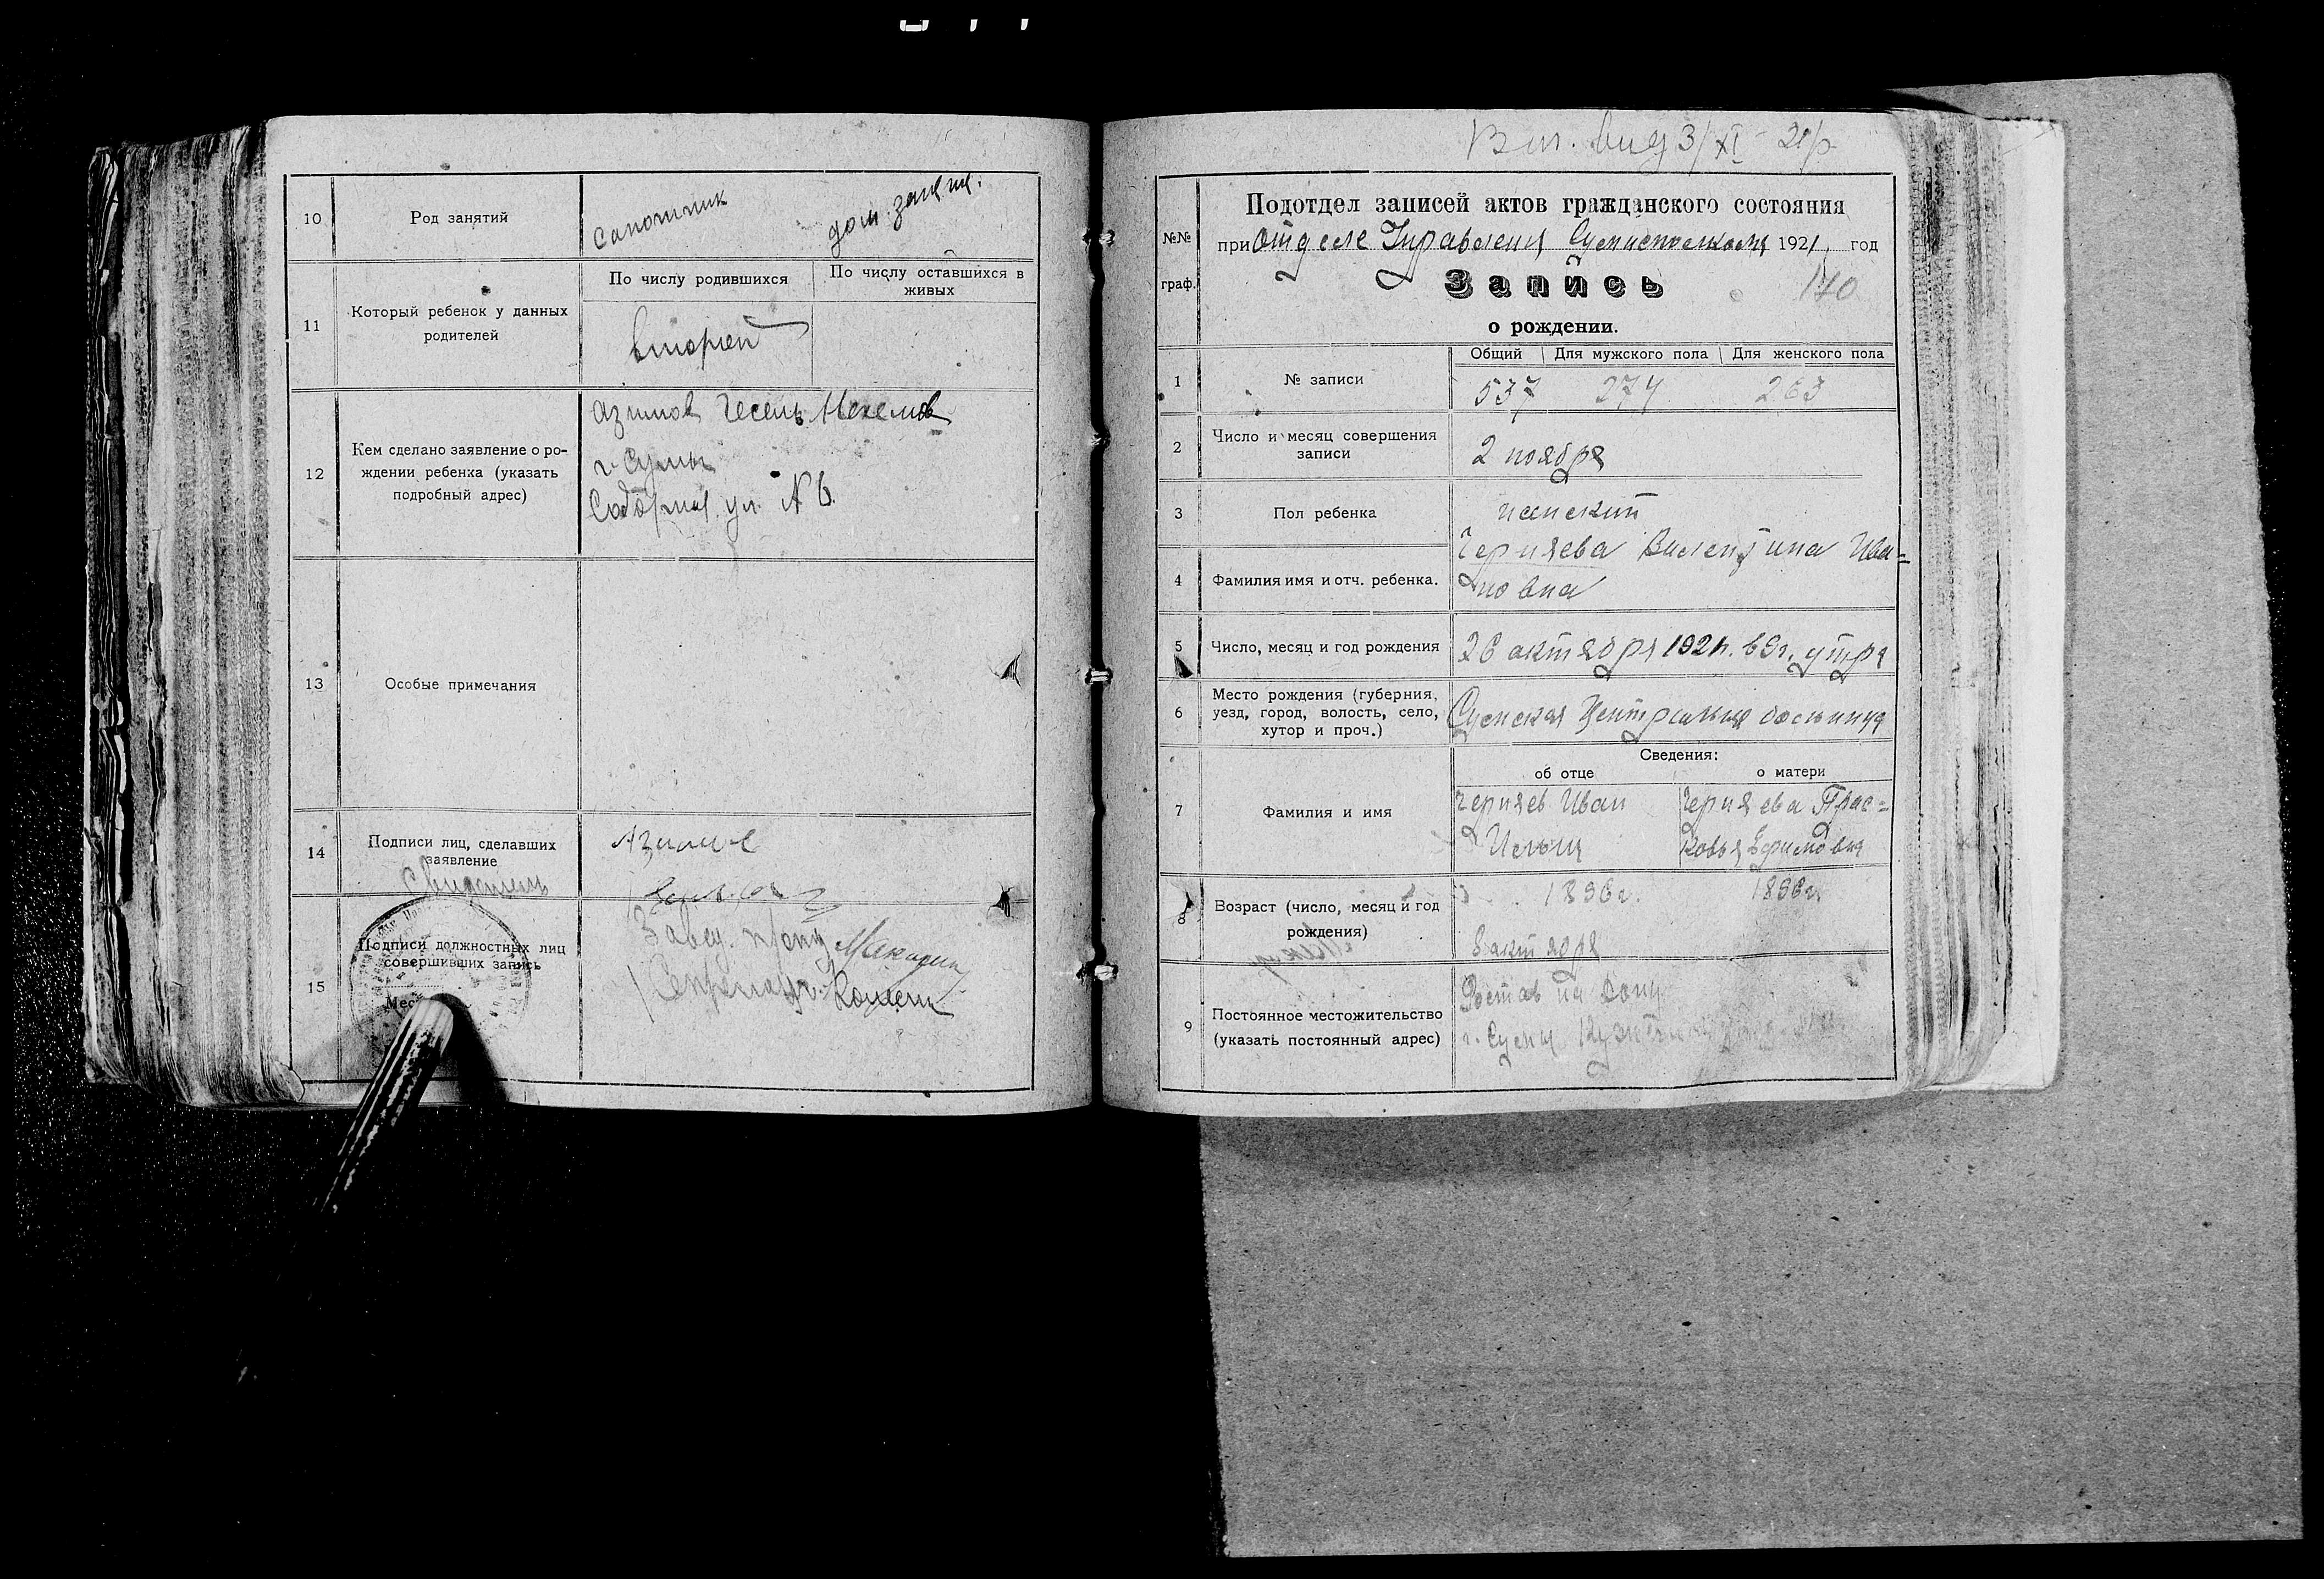 10
Род занятий
сапожник
дом. занят.
11
Который ребенок у данных
родителей
По числу родившихся
По числу оставшихся в
живых
второй
12
Кем сделано заявление о ро-
ждении ребенка (указать
подробный адрес)
Азимов
г. Сумы
Соборная ул. N 6
13
Особые примечания
14
Подписи лиц, сделавших
заявление
Свидетель
15
Подписи должностных лиц
совершивших запись
Завед.
3/XI
Подотдел записей актов гражданского состояния
№№
граф.
при Отделе Управления 1921 год
Запись
170
о рождении.
1
№ записи
Общий
Для мужского пола
Для женского пола
537 274 263
2
Число и месяц совершения
записи
2 ноября
3
Пол ребенка
женский
4
Фамилия имя и отч. ребенка.
Черняева Валентина Ива=
новна
5
Число, месяц и год рождения
26 октября 1921г. в 9ч. утра
6
Место рождения (губерния,
уезд, город, волость, село,
хутор и проч.)
Сумская Центральная больница
Сведения:
об отце
о матери
7
Фамилия и имя
Черняев Иван
Ильич
Черняева Прас=
ковья Ефимовна
8
Возраст (число, месяц и год
рождения)
1896г.
1896г.
8 октября
9
Постоянное местожительство
(указать постоянный адрес)
Ростов на Дону
г. Сумы